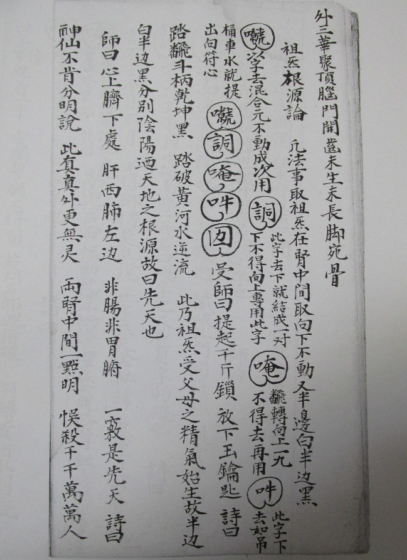 外三華聚頂腦門開蓋未生未長脚宛骨
祖炁根源論 凡法事取祖炁在腎中間取向下不動又半邊白半边黑
嚱 此字去混合元不動成次用 詷 此字去下就結成一对下不得向上專用此字 唵 飜轉向上一九不得去再用 吽 此字下去如吊
桶車水就提出向符心 嚱 詷 唵 吽 囙 受師曰提起千斤鎖 放下玉鑰匙 詩曰
踏飜斗柄乾坤黑 踏破黃河水逆流 此乃祖炁受父母之精氣始生故半边
白半边黑分別陰陽廼天地之根源故曰先天也
師曰心上臍下處 肝西肺左边 非腸非胃腑 一竅是先天 詩曰
神仙不肯分明說 此真真外更無灵 兩腎中間一點明 悮殺千千萬萬人